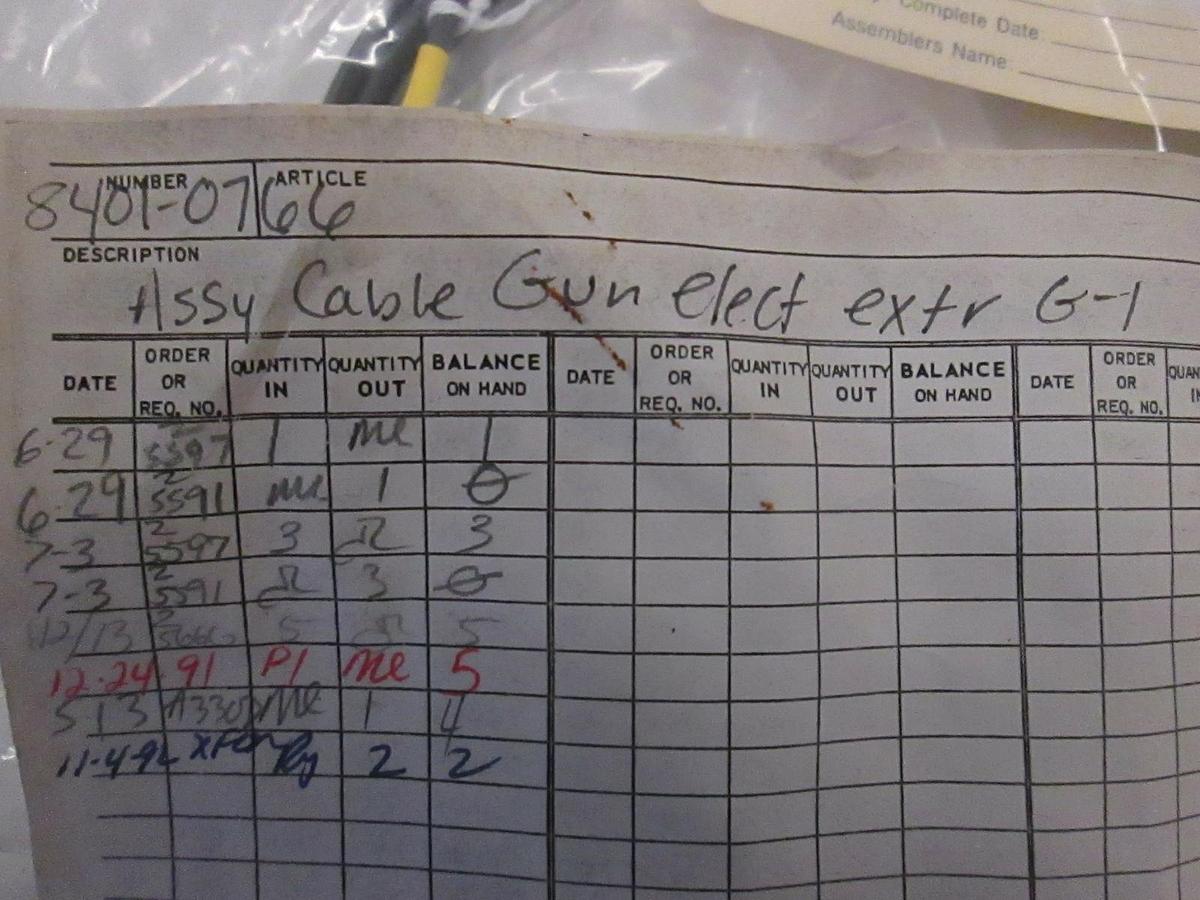 Complete Date
Assemblers Name:
NUMBER ARTICLE
8401-0766
DESCRIPTION
Assy Cable Gun elect extr G-1
DATE ORDER OR REQ. NO. QUANTITY IN QUANTITY OUT BALANCE ON HAND DATE ORDER OR REQ. NO. QUANTITY IN QUANTITY OUT BALANCE ON HAND DATE ORDER OR REQ. NO. QUAN IN
6-29 5597 1 me 1
6-29 2 5591 me 1 0
7-3 2 5597 3 3
7-3 2 5591 3 0
12/13 2 5 5
12-24-91 PI me 5
5 13 me 1 4
11-4-92 2 2